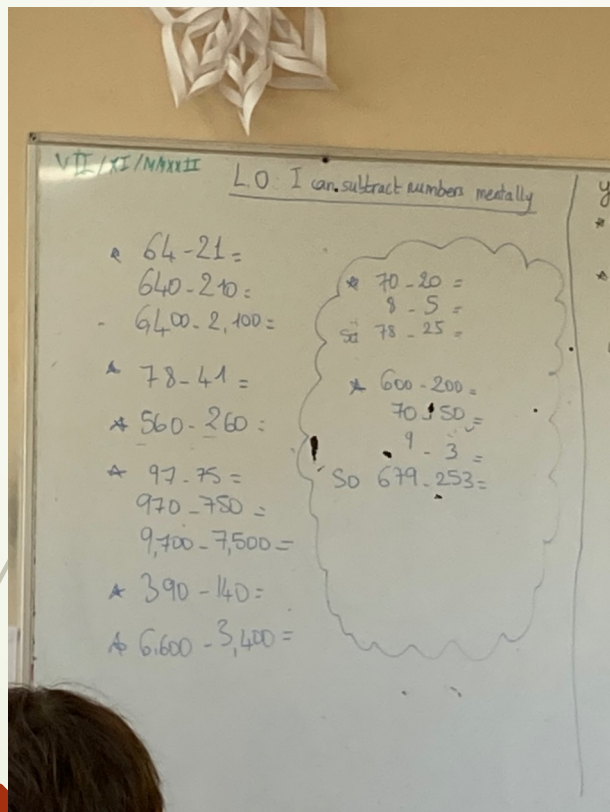 VII/XI/MMXXII
L.O: I can subtract numbers mentally
* 64-21=
640-210=
- 6400-2,100=
* 78-41=
* 560-260=
* 97-75=
970-750=
9,700-7,500=
* 390-140=
* 6,600-3,400=
* 70-20=
8-5=
So 78-25=
* 600-200=
70-50=
9-3=
So 679-253=
y
*
*